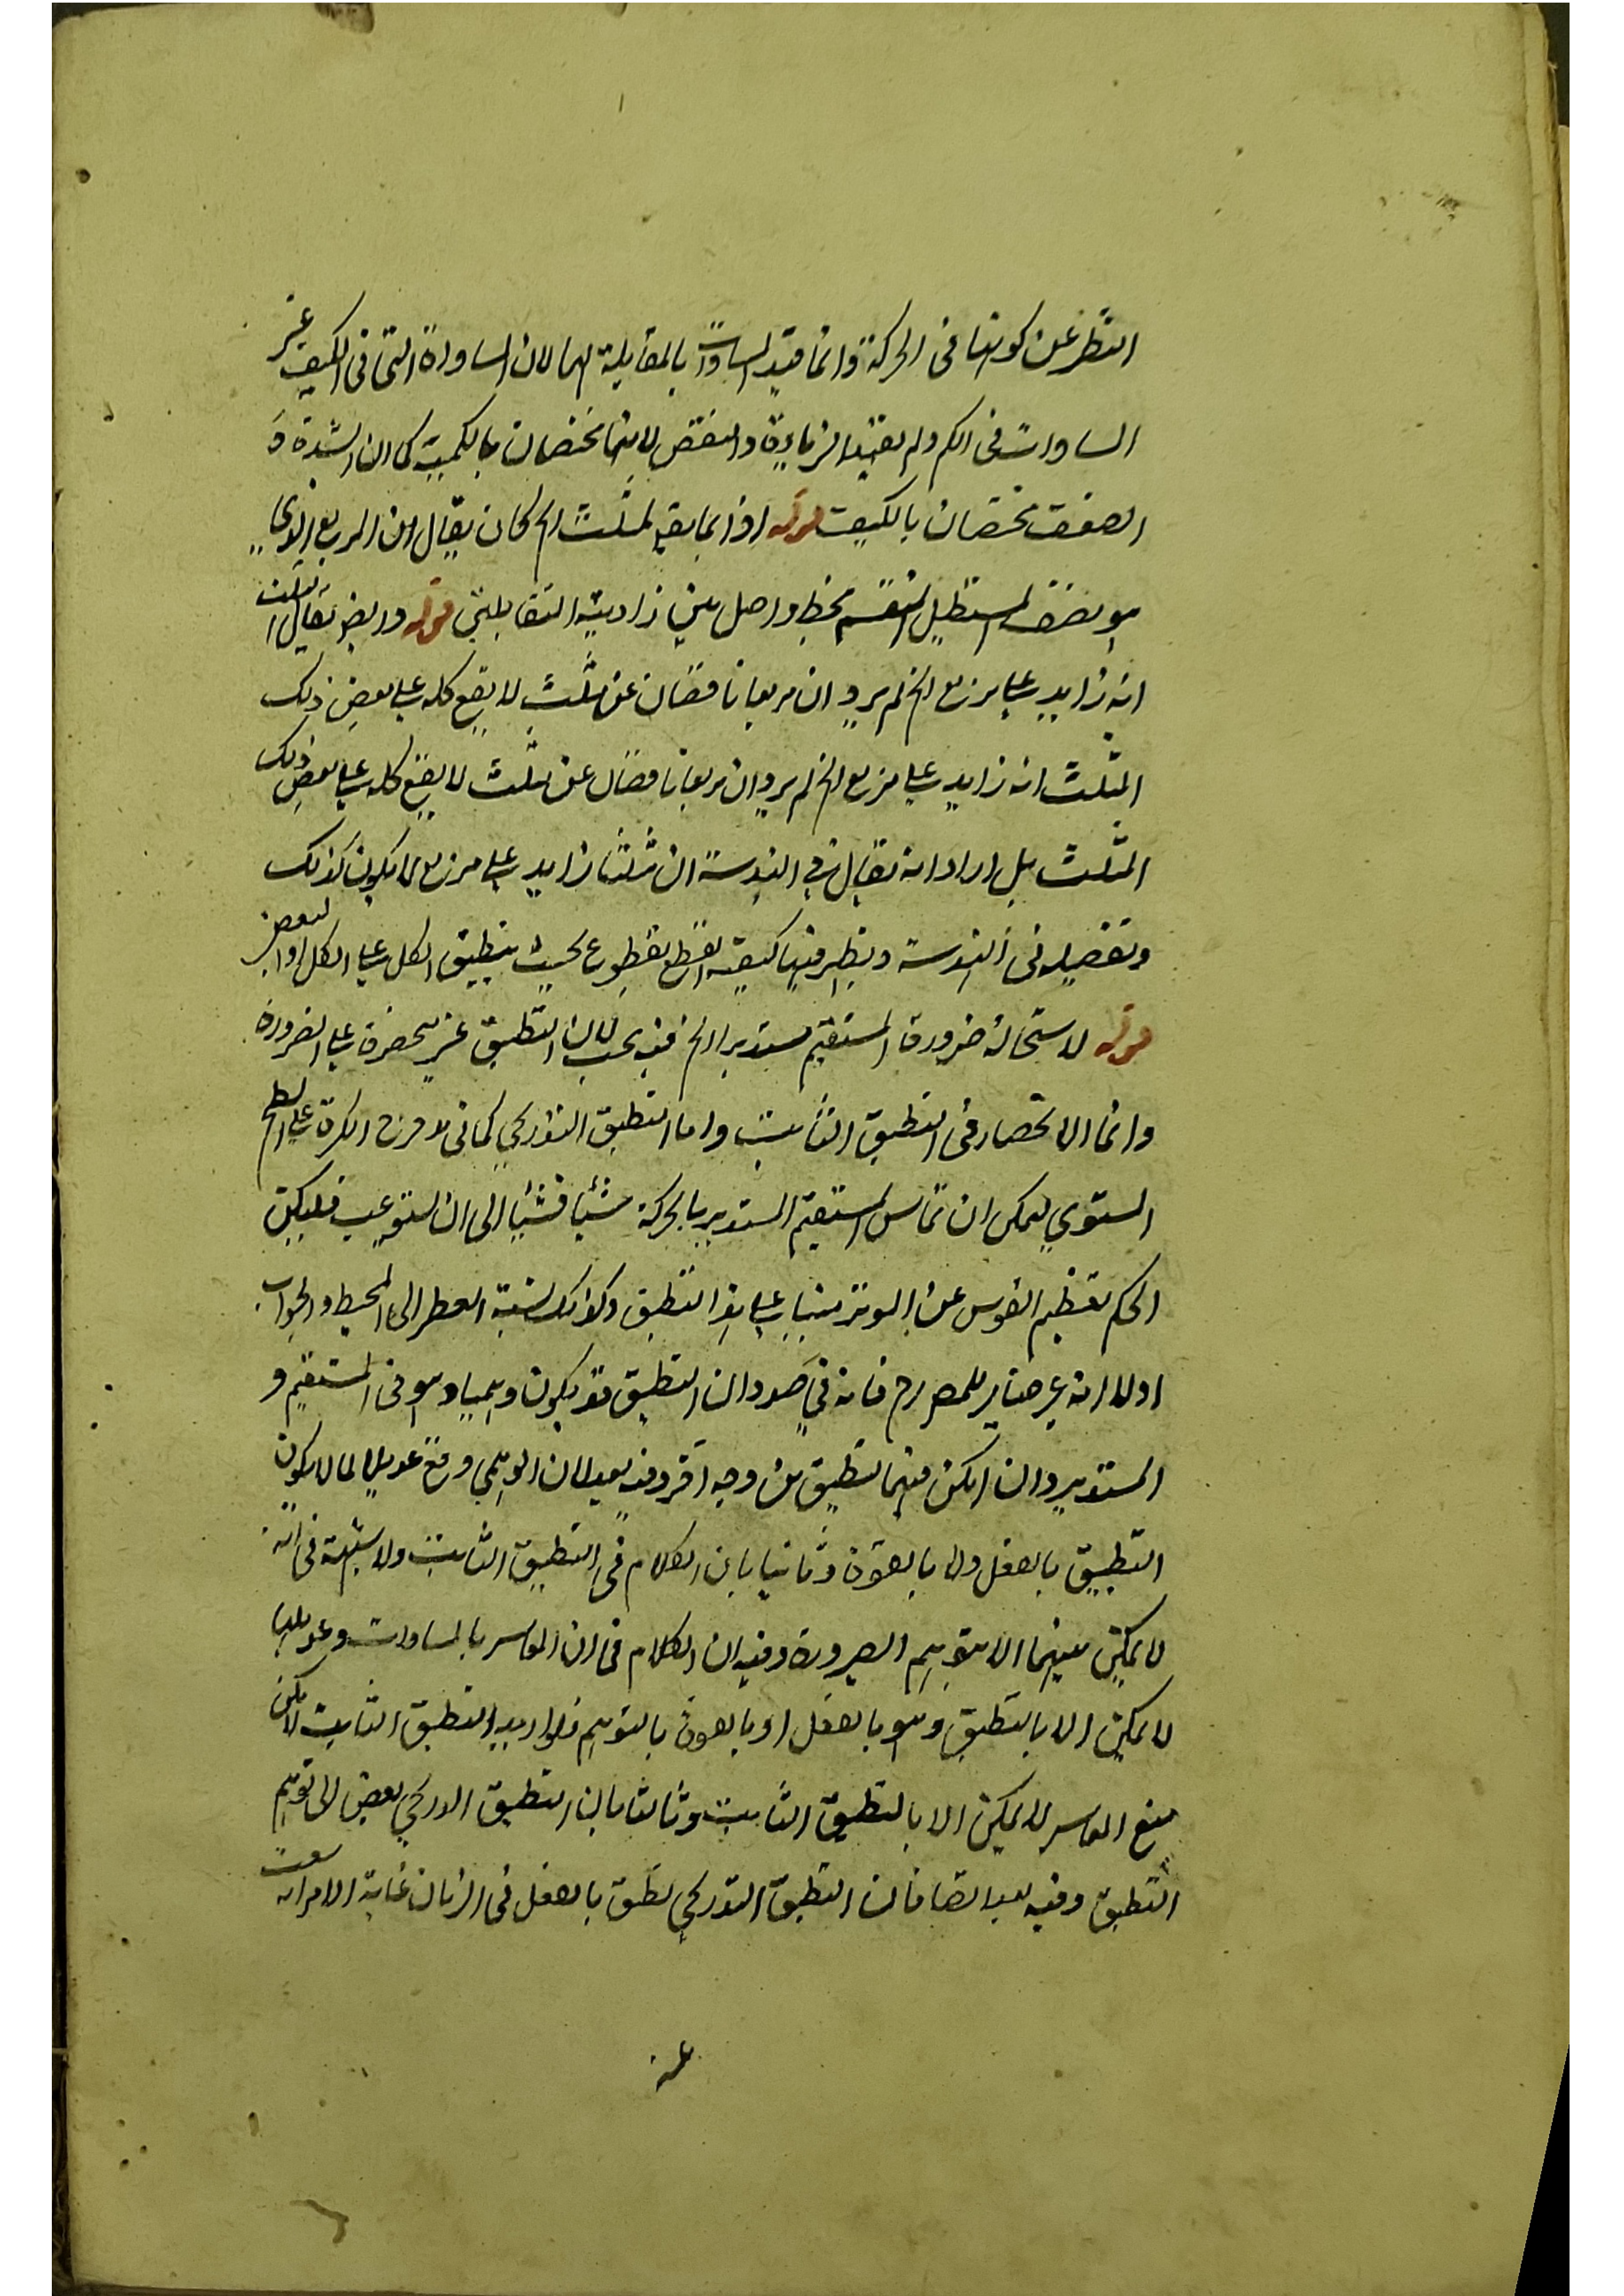 النظر عن كونها فى الحركة وانما قيد المساواة بالمقابلة لهما لان المساواة التى فى الكيف غير
المساوات فى الكم ولم يقيد الزيادة والنقص لانهما يختصان بالكمية كما ان الشدة و
الضعف يختصان بالكيف قوله اذا بما بقى لمثلث الخ كان يقال ان المربع الذي
هو نصف المستطيل المنقسم بخط واصل بين زاويتيه المتقابلتين قوله وربما يقال لمثلث
انه زايد على مربع الخ لم يرد ان مربعا نا قصان عن مثلث لا يقع كله على بعض ذلك
المثلث انه زايد على مربع الخ لم يرد ان مربعا نا قصان عن مثلث لا يقع كله على بعض ذلك
المثلث بل اراد انه يقال فى الهندسة ان مثلثا زايد على مربع لما يكون كذلك
وتفصيله فى الهندسة ويظهر فيها كيفية القطع بقطوع بحيث ينطبق الكل على الكل او البعض
قوله لاستحالة ضرورة المستقيم مستديرا الخ فيه بحث لان التطبيق غير منحصر على الضرورة
وانما الانحصار فى التطبيق الثابت واما التطبيق التدريجي كما فى دحرجة الكرة على السطح
المستوي يمكن ان تماس المستقيم المستدير بالحركة شيئا فشيئا الى ان يستوعب فليكن
الحكم بعظم القوس عن الوتر مبنيا على هذا التطبيق وكذلك نسبة القطر الى المحيط والجواب
اولا انه غير ضاير للمصرح فانه فى صدد ان التطبيق قد يكون وهميا وهو فى المستقيم و
المستدير وان امكن فيهما تطبيق من وجه آخر وفيه بعد لان الوهمي وقع عديلا لما لا يكون
التطبيق بالفعل ولا بالقوة وثانيا بان الكلام فى التطبيق الثابت ولا شبهة فى انه
لا يمكن بينهما الا بتوهم الصيرورة وفيه ان الكلام فى ان الحكم بالمساوات وعديلها
لا يمكن الا بالتطبيق وهو بالفعل او بالقوة بالتوهم فلو اريد التطبيق الثابت لامكن
منع الحكم لا يمكن الا بالتطبيق الثابت وثالثا بان التطبيق التدريجي يفضى الى توهم
التطبيق وفيه بعد ايضا فان التطبيق التدريجي تطبق بالفعل فى الزمان غاية الامر انه